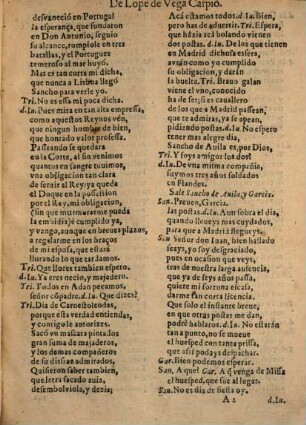 De Lope de Vega Carpio.
desvaneciò en Portugal
la esperança, que fundaron
en Don Antonio, seguio
su alcance, rompiole en tres
batallas, y el Portugues
temeroso al mar huyó.
Mas es tan corta mi dicha,
que nunca a Lisboa llegó
Sancho para verle yo.
Tri. No es essa mi poca dicha.
d.Iu. Pues mira en tan alta empressa,
como aquestos Reynos vèn,
que ningun hombre de bien,
que honrado valor professa.
Passeando se quedara
en la Corte, al fin venimos
quantos en sangre tuuimos,
vna obligacion tan clara
de seruir al Rey, ya queda
el Duque en la possession
por el Rey, mi obligacion,
(sin que murmurarme pueda
la embidia) e cumplido ya,
y vengo, aunque en breues plazos,
a regalarme en los braços
de mi esposa, que estarà
llorando lo que tardamos.
Tri. Que llores tambien espero.
d.Iu. Ya eres necio, y majadero.
Tri. Todos en Adan pecamos,
señor còpadre. d.Iu. Que dizes?
Tri. Dia de Carnestolendas,
porque esta verdad entiendas,
y contigo autorizes.
Sacò vn mascara pintados
gran suma de majaderos,
y los demas compañeros
de su disfraz admirados.
Quisieron saber tambien,
que letra sacado auia,
desembolviola, y dezia;
Acà estamos todos. d.Iu. Bien,
pero has de aduertir. Tri. Espera,
que házia acà bolando vienen
dos postas. d.Iu. De los que tienen
en Madrid dichosa esfera,
avràn como yo cumplido
su obligacion, y daràn
la buelta. Tri. Brauo galan
viene el vno, conocido
ha de ser; si es cauallero
de los que a Madrid passean,
que te admiras, ya se apean,
pidiendo postas. d.Iu. No espero
tener mas alegre dia,
Sancho de Auila es, por Dios,
Tri. Y soys amigos los dos?
d.Iu. De vna misma compañia,
saymos tres años soldados
en Flandes.
Sale Sancho de Auila, y Garcia.
San. Preuen, Garcia,
las postas. d.Iu. Aun sobra el dia,
quando llegueys mas cuydados,
para que a Madrid llegueys.
San. Señor don Iuan, bien hallado
seays, yo soy desgraciado,
pues en ocasion que veys,
tras de nuestra larga ausencia,
que ya de seys años passa,
quiere mi fortuna escasa,
darme tan corta licencia.
Que solo el instante breue,
en que otras postas me dan,
podrè hablaros. d.Iu. No estaràn
tan a punto, no se mueue
el huesped con tanta prissa,
que assi podays despachar.
Gar. Bien podemos esperar.
San. A que? Gar. A q̃ venga de Missa
el huesped, que sue al lugar.
San. No es dia de fiesta oy.
A 2
d.Iu.